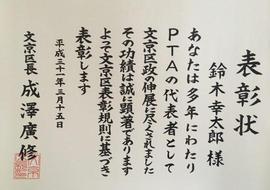 表彰状
鈴木幸太郎様
あなたは多年にわたり
PTAの代表者として
文京区政の伸展に尽くされました
その功績は誠に顕著であります
よって文京区表彰規則に基づき
表彰します
平成三十一年三月十五日
文京区長 成澤廣修